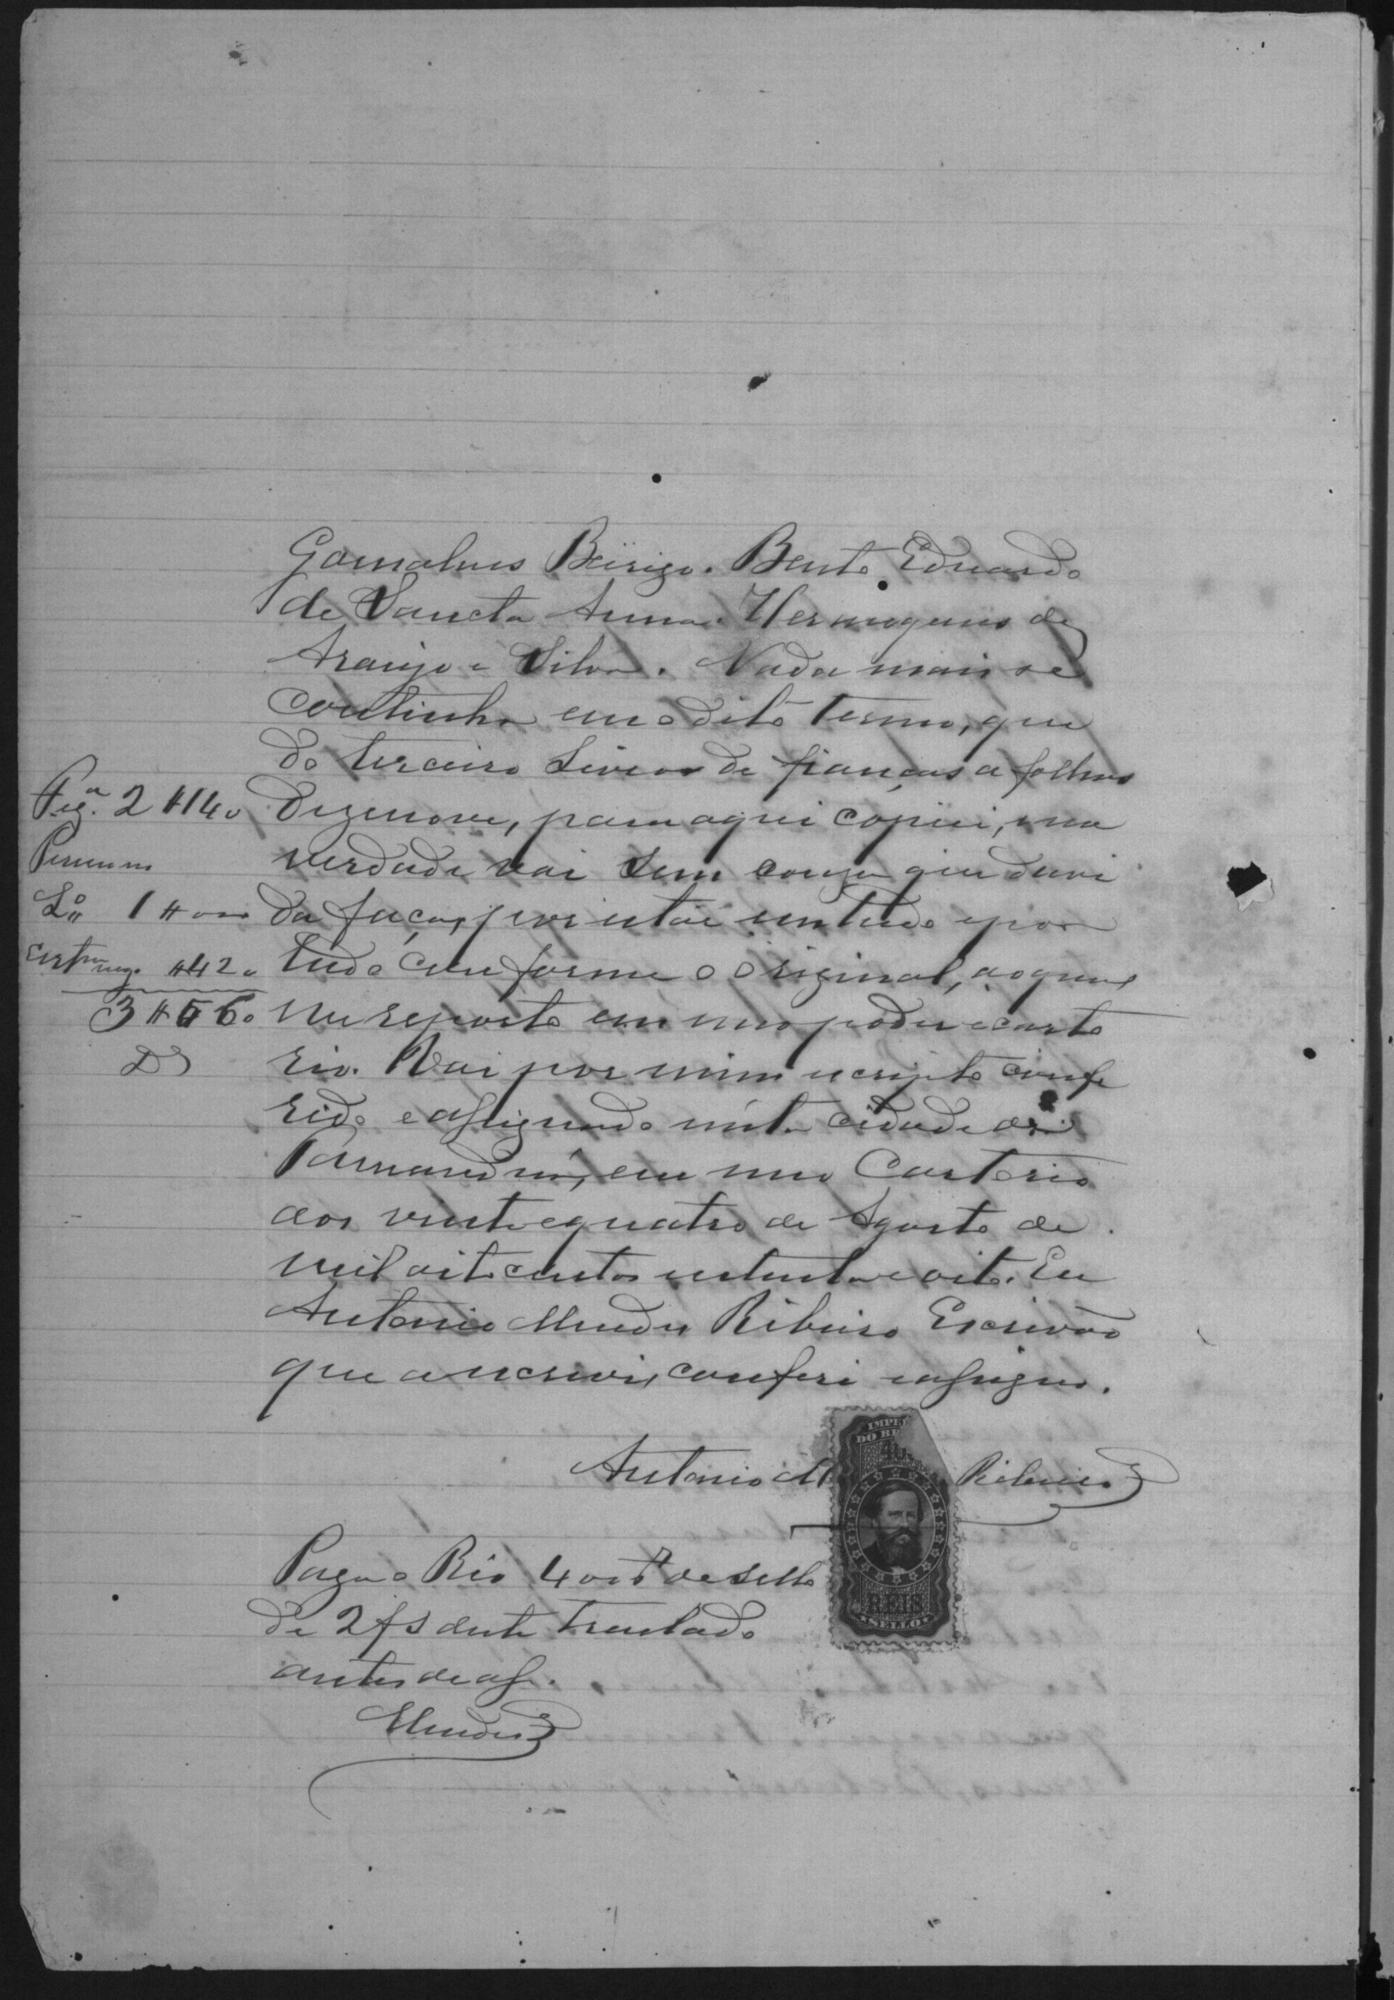 Gonsalves Beirigo. Bento Eduardo
de Sancta Anna. Hermogenes de
Araujo e Silva. Nada mais se
continha em o dito termo, que
do terceiro Livro de fianças a folhas
dezenove, para aqui copiei, e na
verdade vai sem couza que duvi
da faça, por estar em tudo e por
tudo conforme o original, ao qual
me reporto em meo poder e carto
rio. Vai por mim escripto confe
rido e assignado nésta cidade de
em meo Cartorio
aos vinte e quatro de Agosto de
mil oito centos e setenta e oito. Eu
Antonio Mendes Ribeiro Escrivão
que a escrevi, conferi e assigno.
Antonio M Ribeiro
Paga o Rio 400 rs de sello
de 2 fs deste Traslado
antes de ass.
Mendes
2 # 140
Lo 1 # 000
# 420
3 # 560
IMPE
DO BR
REIS
SELLO